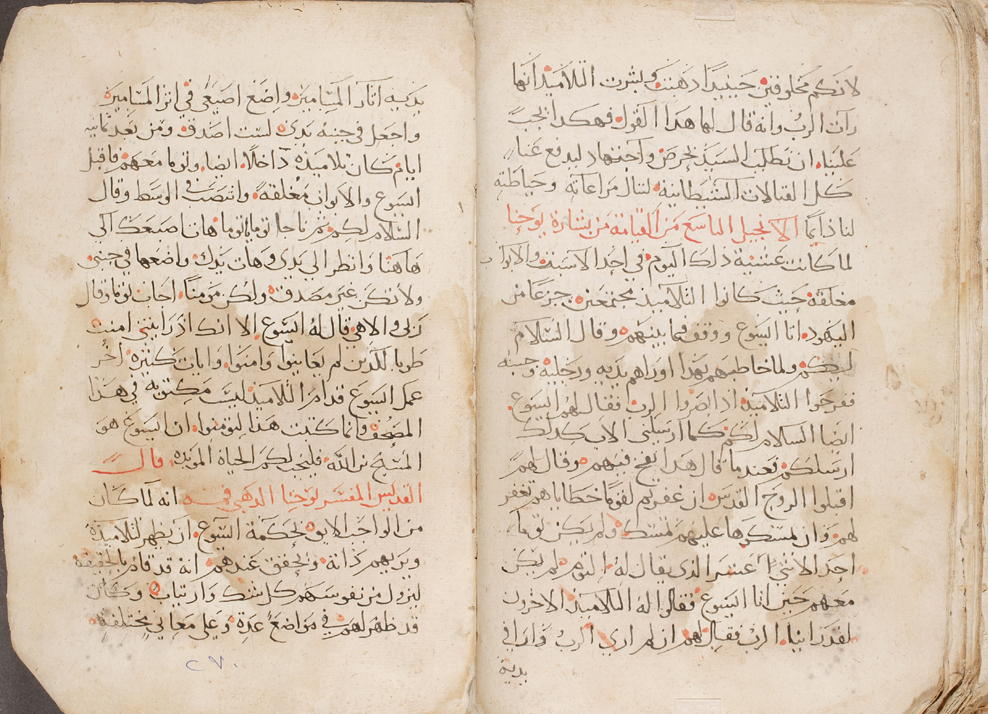 لانكم مخلوقين جديدا ذهبت وبشرت التلاميذ انها
رات الرب وانه قال لها هذا القول فهكذا يجب
علينا ان نطلب السيد بحرص واجتهاد ليدفع عنا
كل القتالات الشيطانية لننال مراعاته وحياطته
لنا دايما الانجيل التاسع من القيامة من بشارة يوحنا
لما كانت عشية ذلك اليوم في احد الاسبت والابواب
مغلقة حيث كانوا التلاميذ مجتمعين جزعا من
اليهود اتا اليسوع ووقف فيما بينهم وقال السلام
لكم ولما خاطبهم بهذا اوراهم يديه ورجليه وجنبه
ففرحوا التلاميذ اذ ابصروا الرب فقال لهم اليسوع
ايضا السلام لكم كما ارسلني الاب كذلك
ارسلكم فعندما قال هذا نفخ فيهم وقال لهم
اقبلوا الروح القدس ان غفرتم لقوما خطاياهم تغفر
لهم وان تمسكوها عليهم تمسك ولم يكن توما
احد الاثني عشر الذي يقال له التوم لم يكن
معهم حين اتا اليسوع فقالوا له التلاميذ الاخرون
لقد راينا الرب فقال لهم ان لم اري الرب واري في
يديه
يديه اثار المسامير واضع اصبعي في اثر المسامير
واجعل في جنبه يدي لست اصدق ومن بعد ثمانية
ايام كان تلاميذه داخلا ايضا وتوما معهم فاقبل
اليسوع والابواب مغلقة وانتصب في الوسط وقال
السلام لكم ثم ناحا توما يا توما هات اصبعك الي
هاهنا وانظر الي يدي وهات يدك واضعها في جنبي
ولا تكن غير مصدق ولكن مومنا اجاب توما وقال
ربي والاهي قال له اليسوع الا انك اذ رايتني امنت
طوبا للذين لم يعاينوا وامنوا وايات كثيرة اخر
عمل اليسوع قدام التلاميذ ليست مكتوبة في هذا
المصحف وانما كتبت هذا لتومنوا ان اليسوع هو
المسيح بن الله فليجب لكم الحياة الموبده قال
القديس المفسر يوحنا الذهبي فمه انه لما كان
من الواجب الايق لحكمة اليسوع ان يظهر لتلاميذه
ويريهم ذاته ويحقق عندهم انه قد قام بالحقيقة
ليزول من نفوسهم كل شك وارتياب وكان
قد ظهر لهم في مواضع عدة وعلي معاني مختلفة
٢٧٠